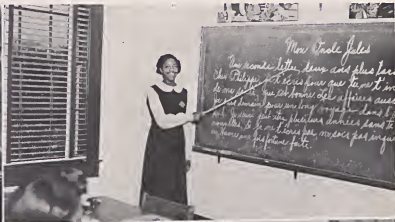 Mon Oncle Jules
Une seconde lettre, deux ans plus tard
cher Philippe, je t'écris pour que tu ne t'in
de ma santé, qui est bonne. Les affaires aussi
demain pour un long voyage dans
être plusieurs années sans te
nouvelles. Si je ne t'écris pas, ne sois pas inqui
fortune faite.